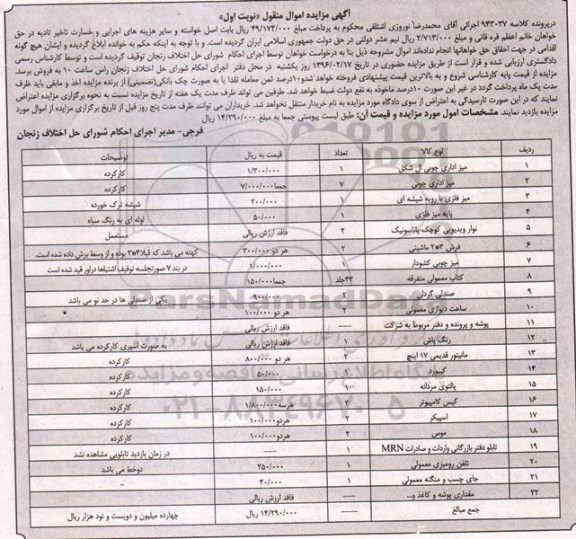 آگهی مزایده اموال منقول «نوبت اول»
درپرونده کلاسه ۹۴۳۰۳۷ اجرائی آقای محمدرضا نوروزی اشتلقی محکوم به پرداخت مبلغ ۴۹/۱۷۴/۰۰۰ ریال بابت اصل خواسته و سایر هزینه های اجرایی و خسارت تاخیر تادیه در حق
خواهان خانم اعظم قره قانی و مبلغ ۲/۷۱۳/۰۰۰ ریال نیم عشر دولتی در حق دولت جمهوری اسلامی ایران گردیده است. و با توجه به اینکه حکم به خوانده ابلاغ گردیده و ایشان هیچ گونه
اقدامی در جهت احقاق حق خواهانها انجام نداده‌اند اموال مشروحه ذیل بنا به درخواست خواهان توسط اجرای احکام شورای حل اختلاف زنجان توقیف گردیده است و توسط کارشناس رسمی
دادگستری ارزیابی شده و قرار است از طریق مزایده حضوری در تاریخ ۱۳۹۶/۰۲/۱۷ روز یکشنبه در محل دفتر اجرای احکام شورای حل اختلاف زنجان راس ساعت ۱۰ به فروش برسد.
مزایده از قیمت پایه کارشناسی شروع و به بالاترین قیمت پیشنهادی فروخته خواهد شدو۱۰درصد ثمن معامله نقدا یا به صورت چک بانکی(تضمینی) از برنده مزایده اخذ و مابقی باید ظرف
مدت یک ماه پرداخت گردد در غیر این صورت ۱۰درصد ماخوذه به نفع دولت ضبط خواهد شد. طرفین می تواند ظرف مدت یک هفته از تاریخ مزایده نسبت به نحوه برگزاری مزایده اعتراض
نمایند که در این صورت تارسیدگی به اعتراض از سوی دادگاه مورد مزایده به نام خریدار منتقل نخواهد شد. خریداران می توانند ظرف مدت پنج روز قبل از تاریخ برگزاری مزایده از اموال مورد
مزایده بازدید نمایند. مشخصات اموال مورد مزایده و قیمت آن: طبق لیست پیوستی جمعا به مبلغ ۱۴/۲۹۰/۰۰۰ ریال
فرجی- مدیر اجرای احکام شورای حل اختلاف زنجان
ردیف نوع کالا تعداد قیمت به ریال توضیحات
۱ میز اداری چوبی ال شکل ۱ ۱/۳۰۰/۰۰۰ کارکرده
۲ میز اداری چوبی ۷ جمعا۷/۰۰۰/۰۰۰ کارکرده
۳ میز فلزی با رویه شیشه ای ۱ ۲۰۰/۰۰۰ شیشه ترک خورده
۴ پایه میز فلزی ۱ ۵۰/۰۰۰ لوله ای به رنگ سیاه
۵ نوار ویدیویی کوچک پاناسونیک ۲ فاقد ارزش ریالی مستعمل
۶ فرش ۳*۲ ماشینی ۲ هر دو ۳۰۰/۰۰۰ کهنه می باشد که قبلا۴*۳ بوده و از وسط برش داده شده است.
۷ میز چوبی کشودار ۱ ۱/۰۰۰/۰۰۰ در بند ۷ صورتجلسه توقیف اشتباها دراور قید شده است
۸ کتاب معمولی متفرقه ۴۴جلد جمعا۱۵۰/۰۰۰
۹ صندلی گردان ۲ ۹۰۰/۰۰۰ یکی از صندلی ها در حد نو می باشد
۱۰ ساعت دیواری معمولی ۲ هر دو ۱۰۰/۰۰۰
۱۱ پوشه و پرونده و دفتر مربوط به شرکت ---- فاقد ارزش ریالی
۱۲ رنگ پاش ۱ فاقد ارزش ریالی به صورت اسپری کارکرده می باشد
۱۳ مانیتور قدیمی ۱۷ اینچ ۲ هر دو ۸۰۰/۰۰۰ کارکرده
۱۴ کیبورد ۱ ۵۰/۰۰۰ کارکرده
۱۵ پالتوی مردانه ۱ ۱۵۰/۰۰۰ کارکرده
۱۶ کیس کامپیوتر ۳ هرسه۱/۸۰۰/۰۰۰ کارکرده
۱۷ اسپیکر ۲ هردو۱۰۰/۰۰۰ کارکرده
۱۸ موس ۲ هردو۱۰۰/۰۰۰ کارکرده
۱۹ تابلو دفتر بازرگانی واردات و صادرات MRN ۱ ---- در زمان بازدید تابلویی مشاهده نشد
۲۰ تلفن رومیزی معمولی ۱ ۲۵۰/۰۰۰ دوخط می باشد
۲۱ جای چسب و منگنه معمولی ۱ ۴۰/۰۰۰ –
۲۲ مقداری پوشه و کاغذ و... ---- فاقد ارزش ریالی
جمع مبالغ ---- ۱۴/۲۹۰/۰۰۰ ریال چهارده میلیون و دویست و نود هزار ریال
ParsNamadData
۰۲۱-۸۸۳۴۹۶۷۰-۵